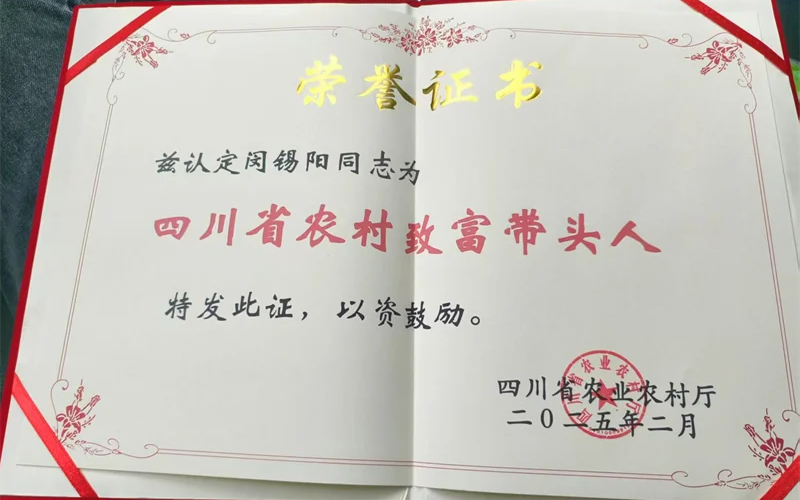 荣誉证书
兹认定闵锡阳同志为
四川省农村致富带头人
特发此证，以资鼓励。
四川省农业农村厅
二〇二五年二月
四川省农业农村厅